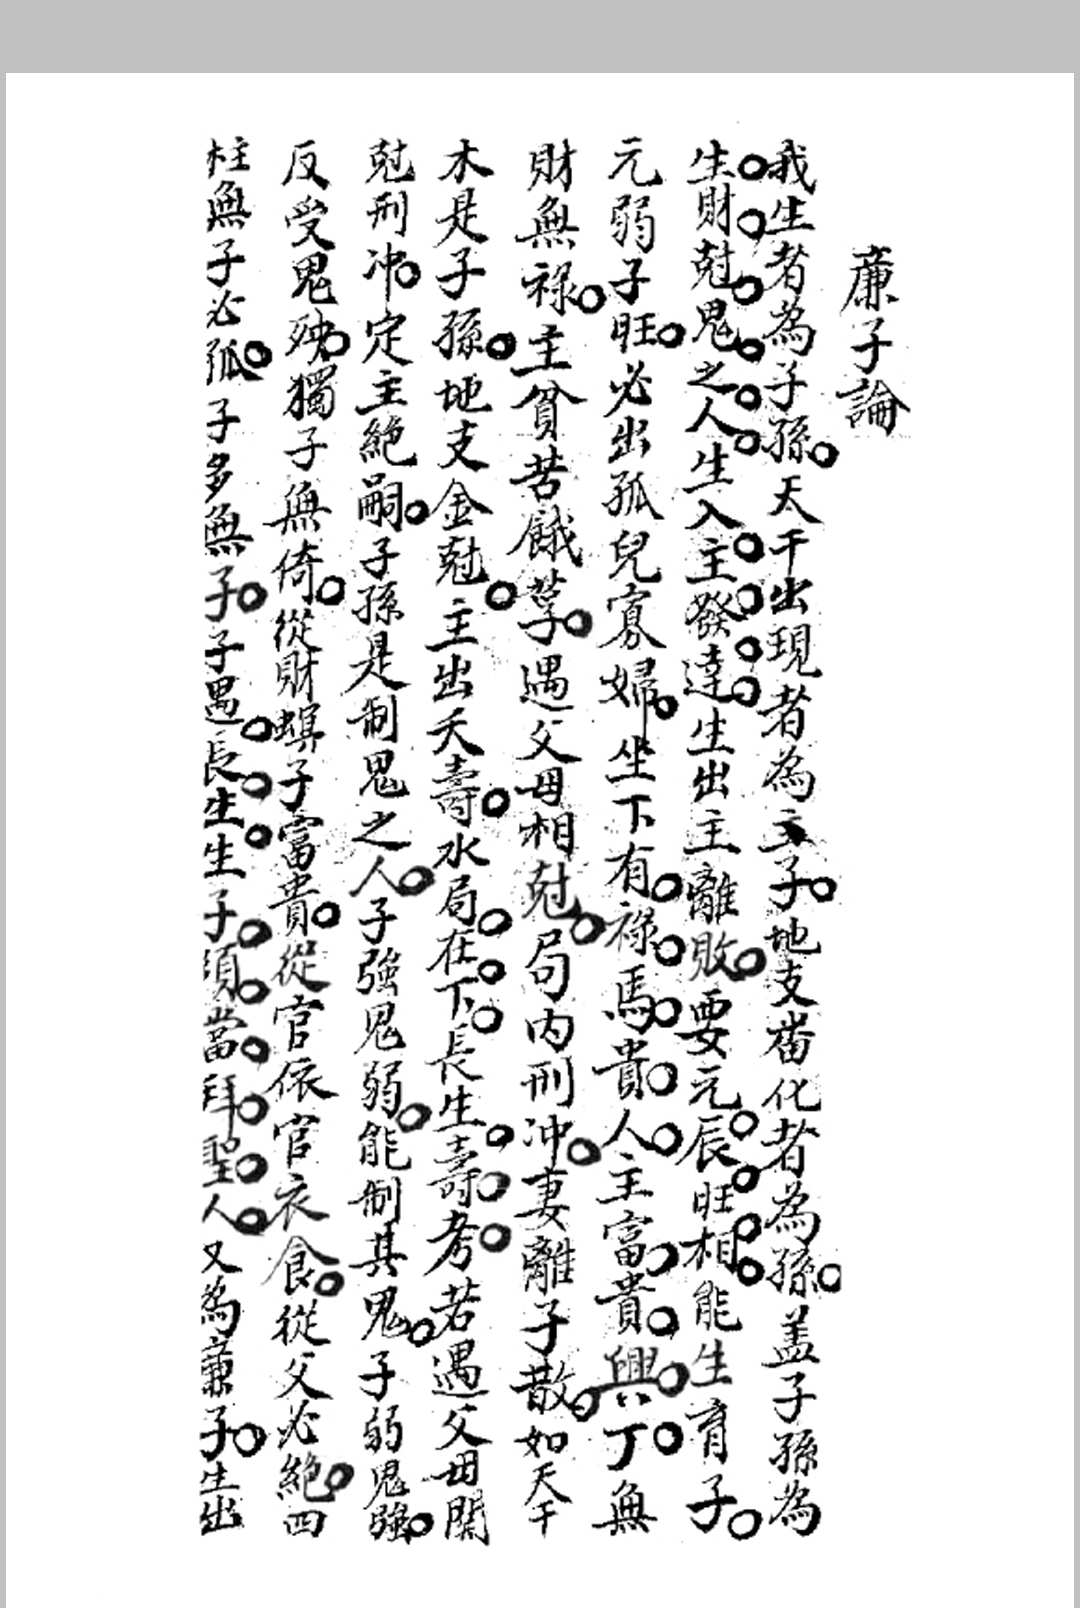 廉子論
我生者為子孫天干出現者為主子地支畨化者為孫盖子孫為
生財尅鬼之人生入主發達生出主離敗要元辰旺相能生育子
元弱子旺必出孤兒寡婦坐下有祿馬貴人主富貴興丁無
財無祿主貧苦餓莩遇父母相尅局内刑冲妻離子散如天干
木是子孫地支金尅主出夭壽水局在下長生壽考若遇父母関
尅刑冲定主絶嗣子孫是制鬼之人子強鬼弱能制其鬼子弱鬼強
反受鬼殃獨子無倚從財螟子富貴從官依官衣食從父必絶四
柱無子必孤子多無子子遇長生生子須當拜聖人又為廉子生出